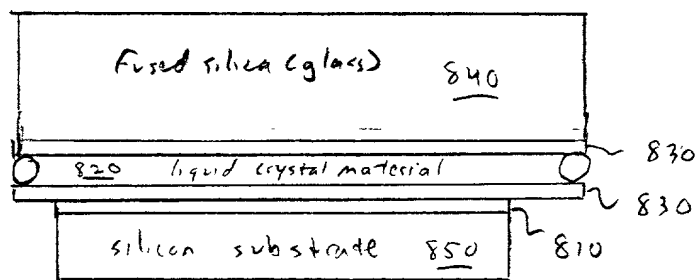 Fused silica (glass) 840
830
820 liquid crystal material
830
810
silicon substrate 850